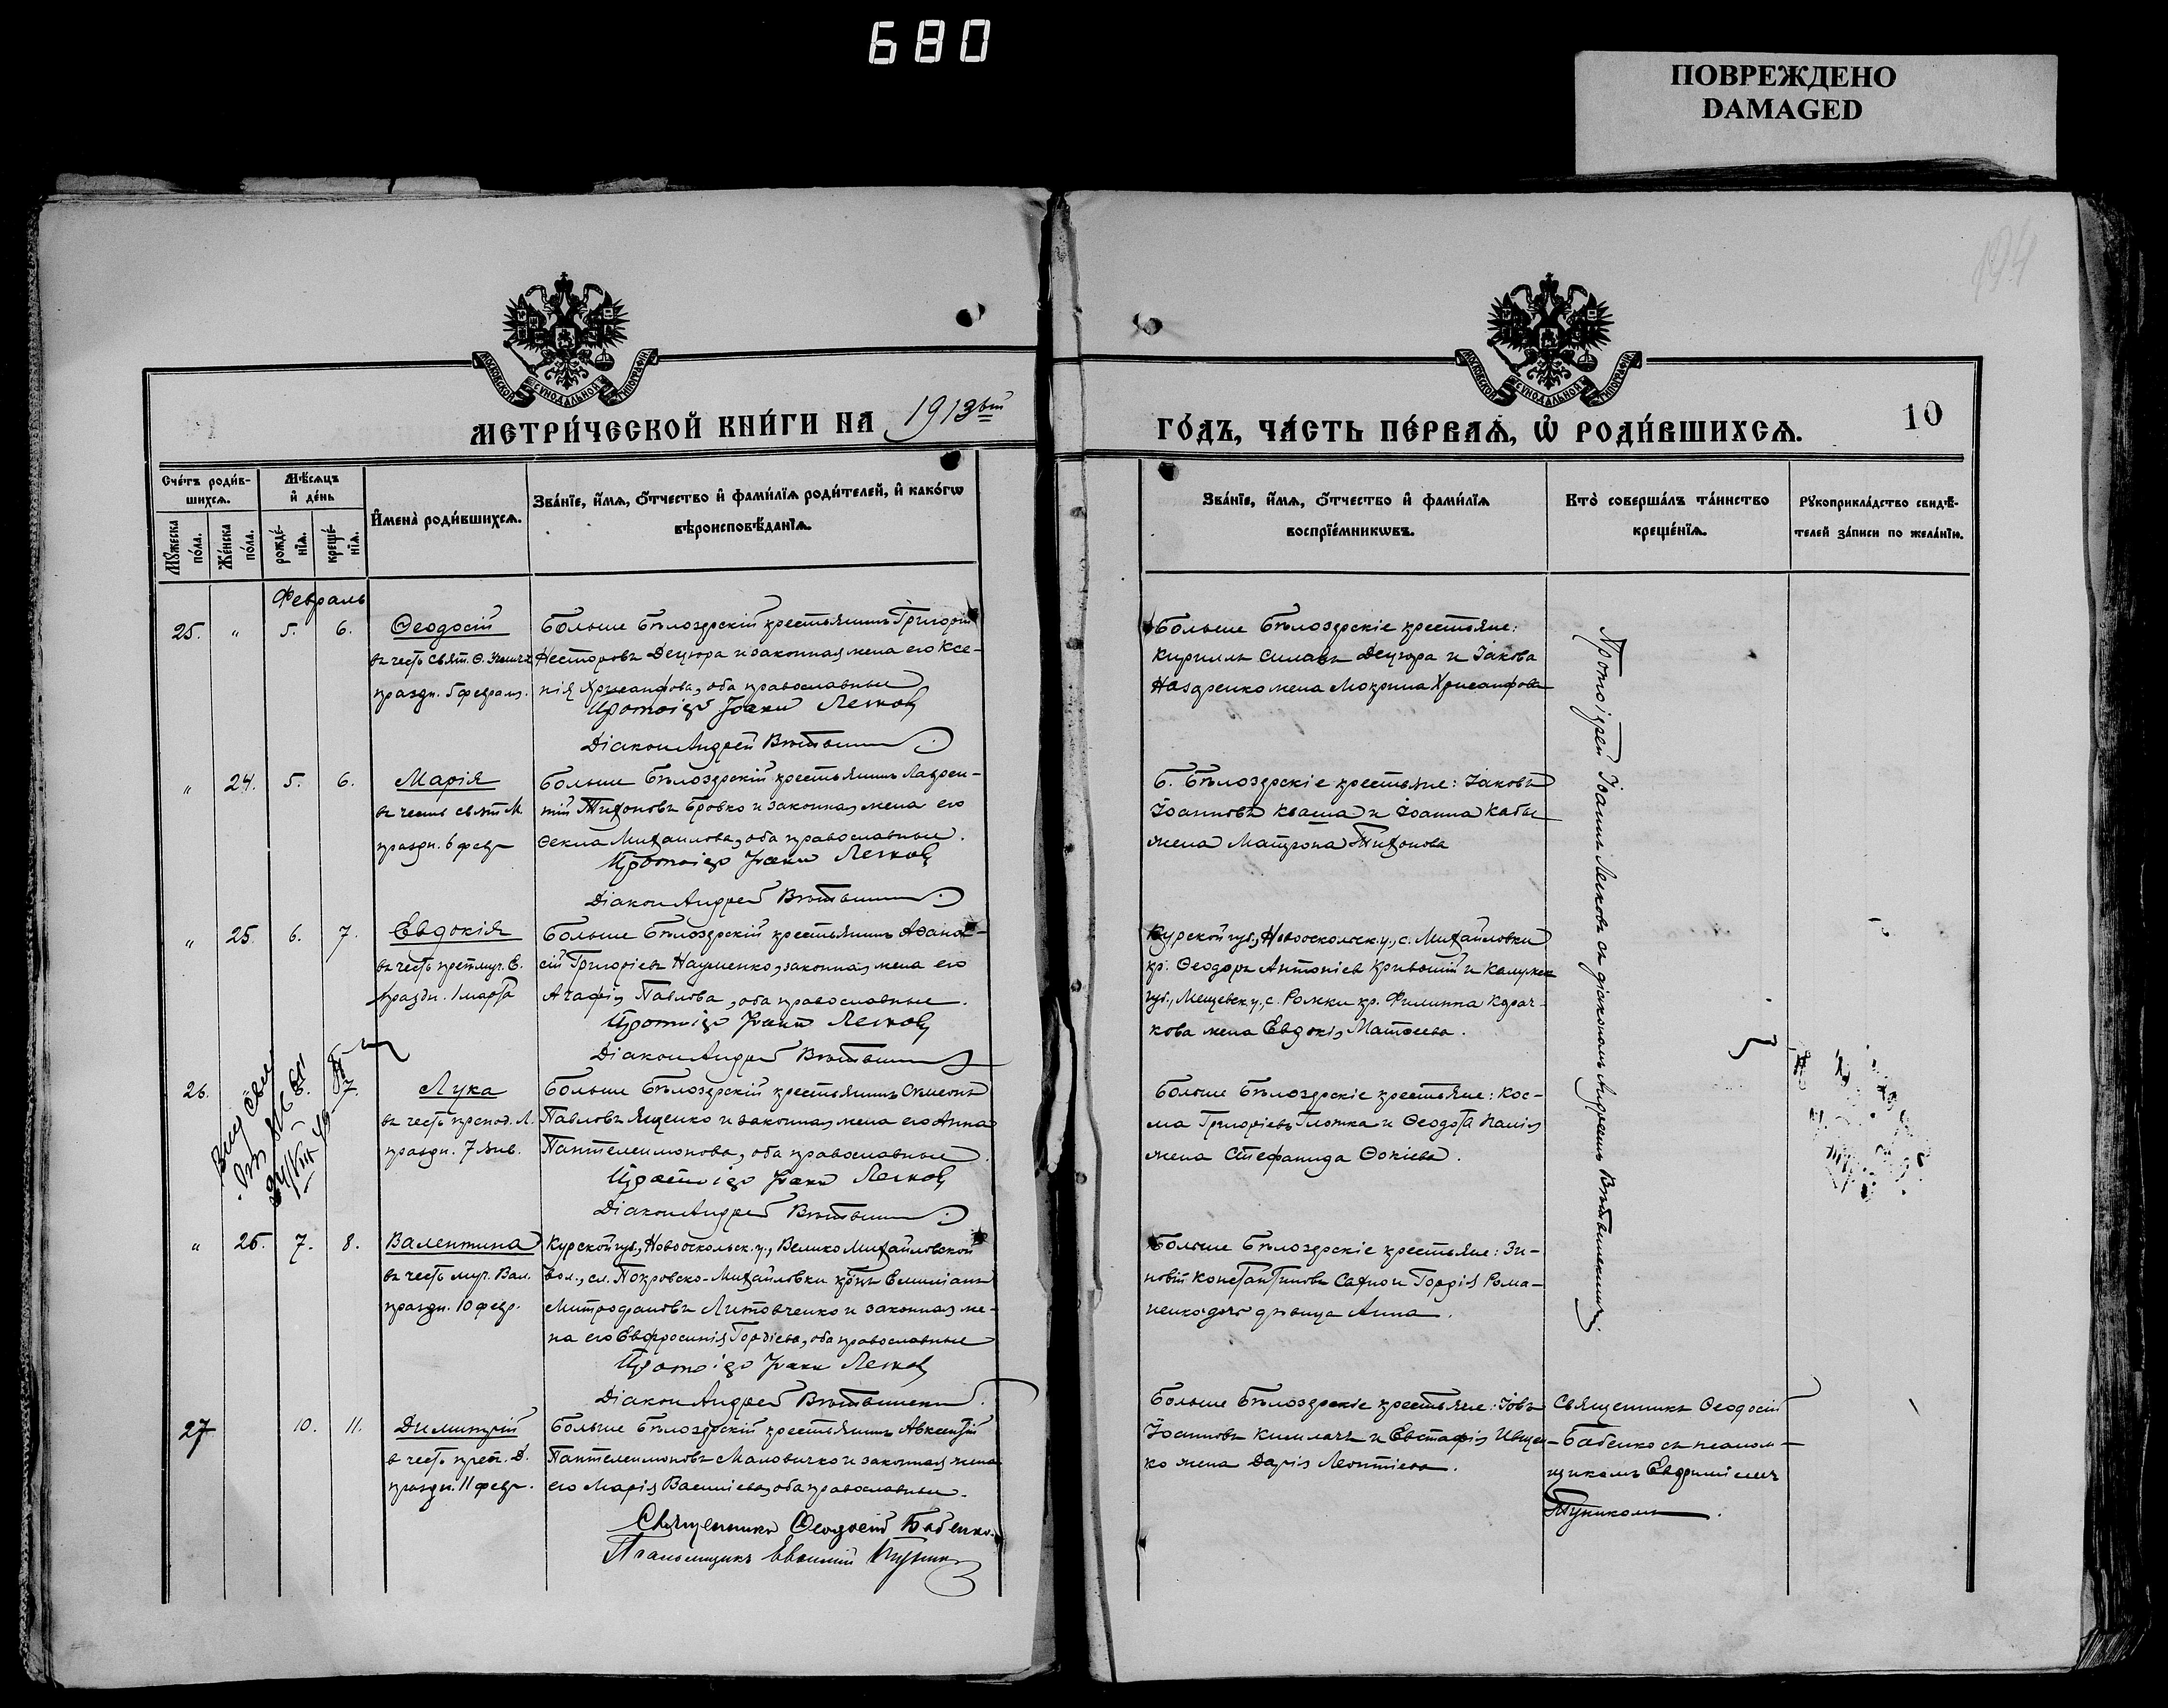 680
ПОВРЕЖДЕНО
DAMAGED
194
МОСКОВСКОЙ СѴНОДАЛЬНОЙ ТИПОГРАФІИ
МОСКОВСКОЙ СѴНОДАЛЬНОЙ ТИПОГРАФІИ
МЕТРИ́ЧЕСКОЙ КНИ́ГИ НА 1913ый
ГО́ДЪ, ЧА́СТЬ ПЕ́РВАѦ, Ѡ҆ РОДИ́ВШИХСѦ.
10
Сче́тъ роди́в-
шихсѧ.
Мѣ́сѧцъ
и҆ де́нь
Мꙋ́жеска
по́ла.
Же́нска
по́ла.
рожде́-
нїѧ.
креще́-
нїѧ.
И҆мена̀ роди́вшихсѧ.
Зва́нїе, и҆́мѧ, ѻ҆́тчество и҆ фами́лїѧ роди́телей, и҆ како́гѡ
вѣроисповѣ́данїѧ.
Зва́нїе, и҆́мѧ, ѻ҆́тчество и҆ фами́лїѧ
воспрїе́мникѡвъ.
Кто̀ соверша́лъ та́инство
креще́нїѧ.
Рꙋкоприкла́дство свидѣ́-
телей за́писи по жела́нїю.
Февраль
25. " 5. 6.
Ѳеодосій
въ честь свят. Ѳ.
праздн. 5 февраля.
Больше Бѣлозерскій крестьянинъ Григорій
Несторовъ Децюра и законная жена его Ксе-
нія Хрисанфова, оба православные
Протоіер Іоанн Легков
Діакон Андрей
Больше Бѣлозерскіе крестьяне:
Кириллъ Силаевъ Децюра и Іакова
Назаренко жена Мокрина Хрисанфова
Протоіерей Іоаннъ Легковъ съ діакономъ Андреемъ
" 24. 5. 6.
Марія
въ честь свят. М.
праздн. 6 февр
Больше Бѣлозерскій крестьянинъ Лаврен-
тій Тихоновъ Бровко и законная жена его
Ѳекла Михаилова, оба православные.
Протоіер Іоанн Легков
Діакон Андрей
Б. Бѣлозерскіе крестьяне: Іаковъ
Іоанновъ Кваша и Іоанна Кабы
жена Матрона Тихонова
" 25. 6. 7.
Евдокія
въ честь препмуч. Е.
праздн. 1 марта
Больше Бѣлозерскій крестьянинъ Аѳана-
сій Григоріевъ Науменко, законная жена его
Агафія Павлова, оба православные.
Протоіер Іоанн Легков
Діакон Андрей
Курской губ., Новооскольск. у., с. Михайловки
кр. Ѳеодоръ Антоніев Кривошій и Калужск
губ., Мещевск. у., с. Рожки кр. Филиппа
кова жена Евдокія Матѳеева.
26. 7.
Лука
въ честь препод. Л.
праздн. 7 янв.
Больше Бѣлозерскій крестьянинъ Симеонъ
Павловъ Яценко и законная жена его Анна
Пантелеимонова, оба православные.
Протоіер Іоанн Легков
Діакон Андрей
Больше Бѣлозерскіе крестьяне: Кос-
ма Григоріевъ Глотка и Ѳеодота
жена Стефанида Ѳокіева.
" 26. 7. 8.
Валентина
въ честь муч. Вал.
праздн. 10 февр.
Курской губ., Новооскольск. у., Велико Михайловской
вол., сл. Покровско-Михайловки Емиліанъ
Митрофановъ Литовченко и законная же-
на его Евфросинія Гордіева, оба православные
Протоіер Іоанн Легков
Діакон Андрей
Больше Бѣлозерскіе крестьяне: Зи-
новій Константиновъ Сахно и Гордія Рома-
ненко дочь дѣвица Анна.
27 10. 11.
Димитрій
в честь преп. Д.
праздн. 11 февр.
Больше Бѣлозерскій крестьянинъ Авксентій
Пантелеимоновъ Маловичко и законная жена
его Марія Василіева, оба православные.
Священникъ Ѳеодосій Бабенко.
Псаломщикъ Евѳимій
Больше Бѣлозерскіе крестьяне: Іовъ
Іоанновъ и Евстафія Ивщен-
ко жена Дарія Леонтіева.
Священникъ Ѳеодосій
Бабенко съ псалом-
щикомъ Евфиміемъ